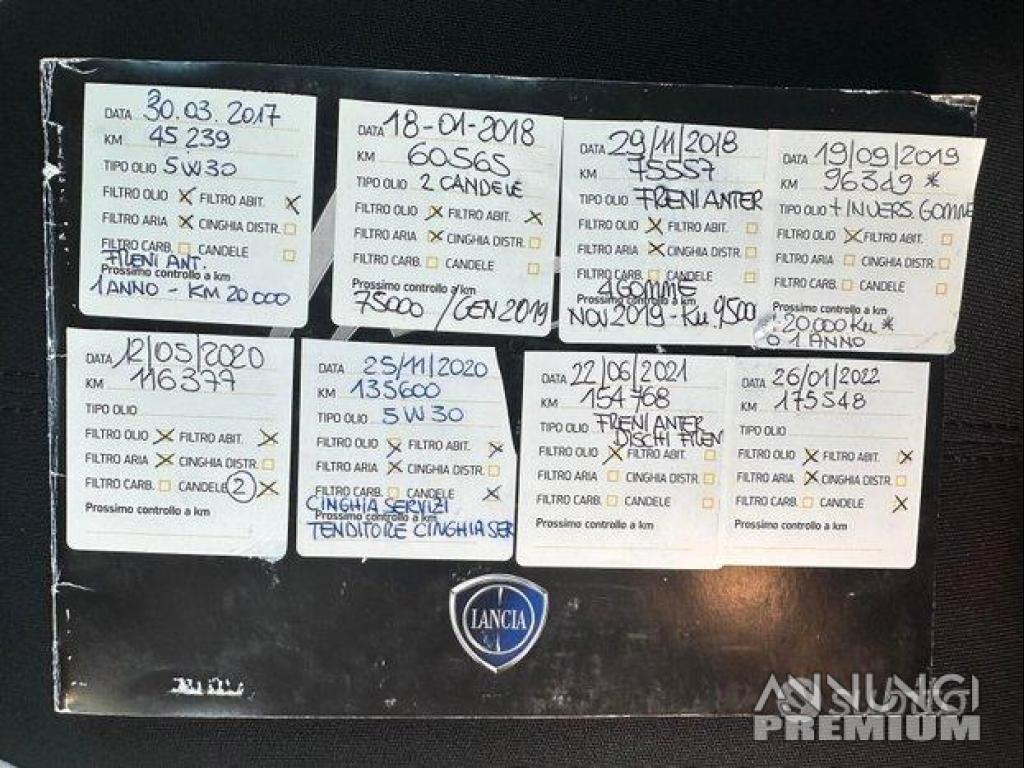 DATA 30.03.2017
KM 45239
TIPO OLIO 5W30
FILTRO OLIO X FILTRO ABIT. X
FILTRO ARIA X CINGHIA DISTR.
FILTRO CARB. CANDELE
FRENI ANT.
Prossimo controllo a km
1 ANNO - KM 20000
DATA 18-01-2018
KM 60565
TIPO OLIO 2 CANDELE
FILTRO OLIO X FILTRO ABIT. X
FILTRO ARIA X CINGHIA DISTR.
FILTRO CARB. CANDELE
Prossimo controllo a km
75000 / GEN 2019
DATA 29/11/2018
KM 75557
TIPO OLIO FRENI ANTER
FILTRO OLIO X FILTRO ABIT.
FILTRO ARIA X CINGHIA DISTR.
FILTRO CARB. CANDELE
4 GOMME
Prossimo controllo a km
NOV 2019 - KM 9500
DATA 19/09/2019
KM 96349 *
TIPO OLIO + INVERS. GOMME
FILTRO OLIO X FILTRO ABIT.
FILTRO ARIA CINGHIA DISTR.
FILTRO CARB. CANDELE
Prossimo controllo a km
20.000 KM *
O 1 ANNO
DATA 12/05/2020
KM 116377
TIPO OLIO
FILTRO OLIO X FILTRO ABIT. X
FILTRO ARIA X CINGHIA DISTR.
FILTRO CARB. CANDELE 2 X
Prossimo controllo a km
DATA 25/11/2020
KM 135600
TIPO OLIO 5W30
FILTRO OLIO X FILTRO ABIT. X
FILTRO ARIA X CINGHIA DISTR.
FILTRO CARB. CANDELE X
CINGHIA SERVIZI
Prossimo controllo a km
TENDITORE CINGHIA SER
DATA 22/06/2021
KM 154768
TIPO OLIO FRENI ANTER
DISCHI FREN
FILTRO OLIO X FILTRO ABIT.
FILTRO ARIA CINGHIA DISTR.
FILTRO CARB. CANDELE
Prossimo controllo a km
DATA 26/01/2022
KM 175548
TIPO OLIO
FILTRO OLIO X FILTRO ABIT. X
FILTRO ARIA X CINGHIA DISTR.
FILTRO CARB. CANDELE X
Prossimo controllo a km
LANCIA
ANNUNCI
PREMIUM